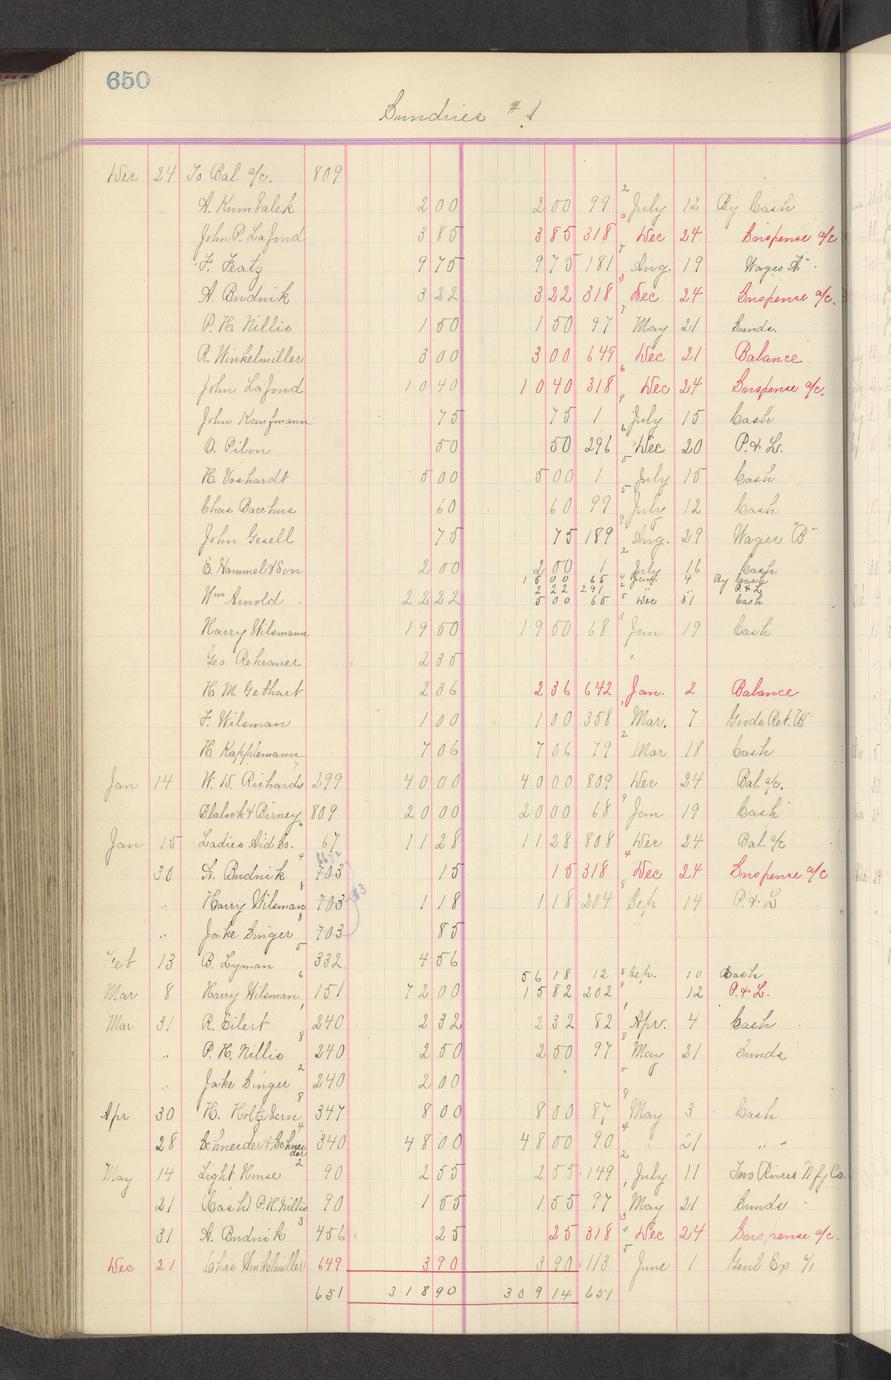 650
Sundries #1
Dec 24 To Bal. a/c. 809
A. Kumbalek 2 00 2 00 99 July 12 By Cash
John P. Lafond 3 85 3 85 318 Dec 24 Suspense a/c
F. Featz 9 75 9 75 181 Aug. 19 Wages "A".
A. Budnik 3 22 3 22 318 Dec 24 Suspense a/c.
P. H. Nillis 1 50 1 50 97 May 21 Sunds.
R. Winkelmiller 3 00 3 00 649 Dec 21 Balance
John Lafond 10 40 10 40 318 Dec 24 Suspense a/c.
John Kaufmann 75 75 1 July 15 Cash
O. Pilon 50 50 296 Dec 20 P. & L.
H. Voshardt 5 00 5 00 1 July 15 Cash
Chas Bacchus 60 60 99 July 12 Cash
John Gesell 75 75 189 Aug. 29 Wages "B"
E. Hammel & Son 2 00 2 00 1 July 16 Cash
15 00 65 June 4 By Cash
Wm Arnold 22 22 2 22 291 " " P & L
5 00 65 Dec 31 Cash
Harry Wilsmann 19 50 19 50 68 Jan 19 Cash
Geo. Rehramer 2 35 "
H. M. Gebhart 2 36 2 36 642 Jan. 2 Balance
F. Wilsman 1 00 1 00 358 Mar. 7 Goods Ret. "B"
H. Kapplemann 7 06 7 06 79 Mar 18 Cash
Jan 14 W. W. Richards 299 40 00 40 00 809 Dec 24 Bal a/c.
Blalock & Birney 809 20 00 20 00 68 Jan 19 Cash
Jan 15 Ladies Aid So. 67 11 28 11 28 808 Dec 24 Bal. a/c
30 A. Budnik 703 15 15 318 Dec 24 Suspense a/c
" Harry Wilsman 703 1 18 1 18 204 Sep 14 P. & L
" Jake Singer 703 85
Feb 13 B. Lyman 332 4 56
56 18 12 Sep. 10 Cash
Mar 8 Harry Wilsman 151 72 00 15 82 202 12 P. & L.
Mar 31 R. Eilert 240 2 32 2 32 82 Apr. 4 Cash
" P. H. Nillis 240 2 50 2 50 97 May 21 Sunds
" Jake Singer 240 2 00
Apr 30 H. Holtz 347 8 00 8 00 87 May 3 Cash
28 Schneider & Schneider 340 48 00 48 00 90 " 21 " "
May 14 Light House 90 2 55 2 55 149 July 11 Two Rivers Mfg Co.
21 Cash P. H. Nillis 90 1 55 1 55 97 May 21 Sunds
31 A. Budnik 456 25 25 318 Dec 24 Suspense a/c.
Dec 21 Chas Winkelmiller 649 3 90 3 90 113 June 1 Genl Ex a/c
651 318 90 309 14 651